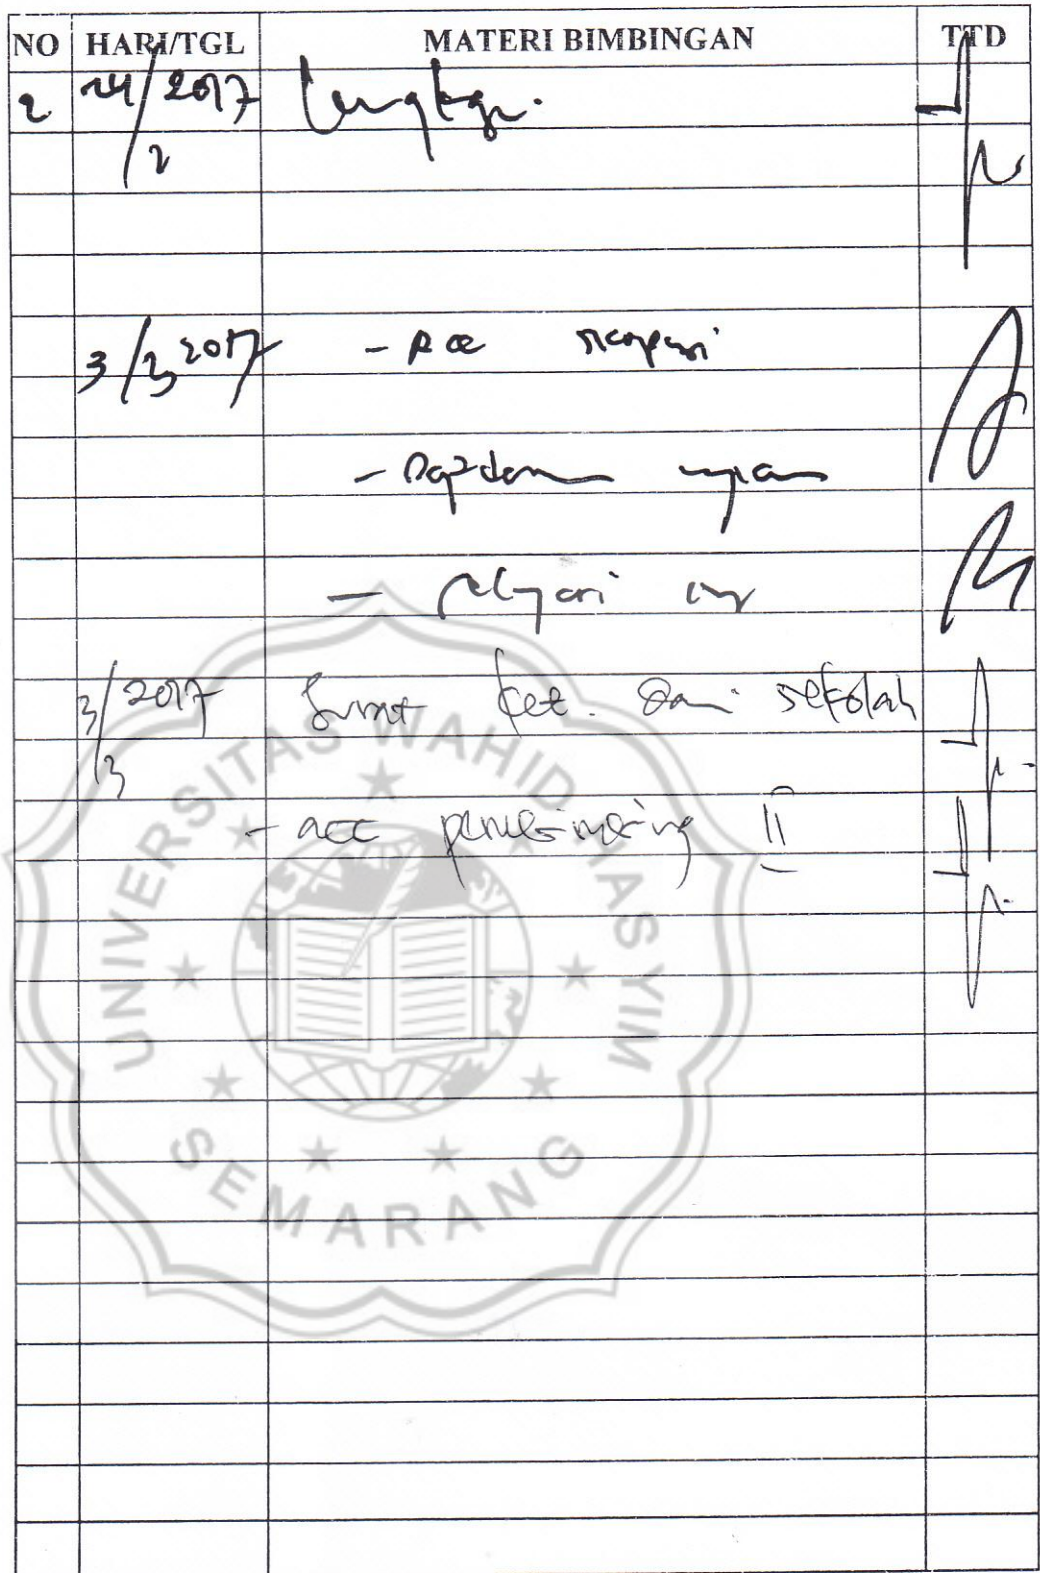 NO HARI/TGL MATERI BIMBINGAN TTD
2 24/2 2017 Lengkapi.
3/3 2017 - Acc skripsi
- Daftar ujian
- pelajari
3/3 2017 Surat ket. dari sekolah
- acc pembimbing II
UNIVERSITAS WAHID HASYIM
SEMARANG